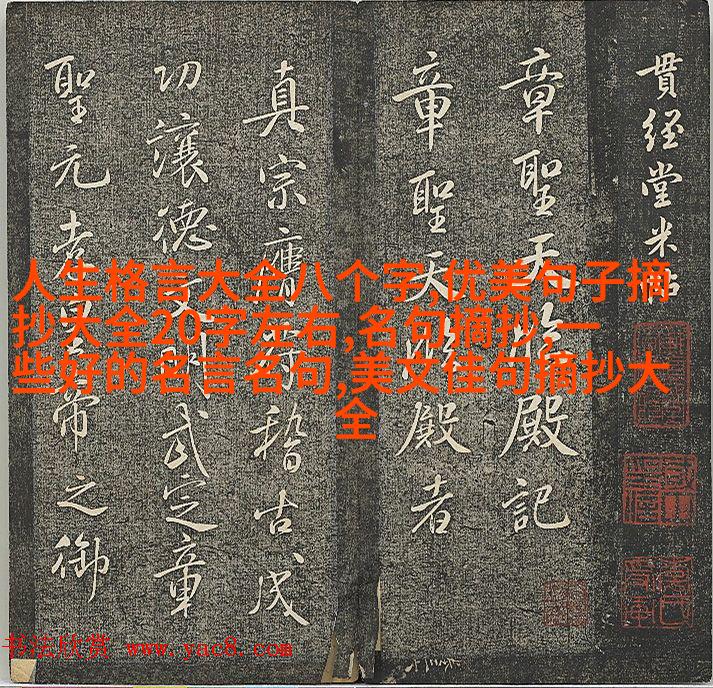 人生格言大全八个字,优美句子摘
抄大全20字左右,名句摘抄,一
些好的名言名句,美文佳句摘抄大
全
貫經堂米帖
章聖天臨殿記
章聖天臨殿者
真宗膺稽古成
功讓德文明武定章
聖元孝皇帝之御
书法欣赏 www.yac8.com